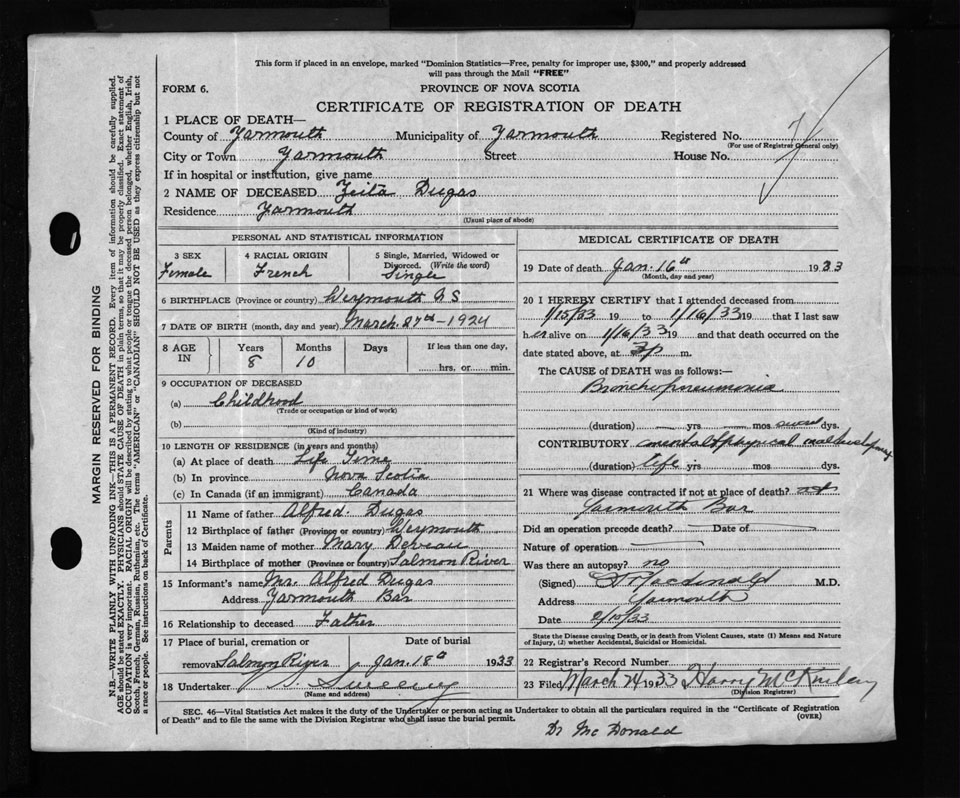 This form if placed in an envelope, marked "Dominion Statistics—Free, penalty for improper use, $300," and properly addressed
will pass through the Mail "FREE"
FORM 6.
PROVINCE OF NOVA SCOTIA
CERTIFICATE OF REGISTRATION OF DEATH
1 PLACE OF DEATH—
County of Yarmouth Municipality of Yarmouth Registered No.
(For use of Registrar General only)
City or Town Yarmouth Street House No.
If in hospital or institution, give name
2 NAME OF DECEASED Zeita Dugas
Residence Yarmouth
(Usual place of abode)
MARGIN RESERVED FOR BINDING
N.B.—WRITE PLAINLY WITH UNFADING INK—THIS IS A PERMANENT RECORD. Every item of information should be carefully supplied.
AGE should be stated EXACTLY. PHYSICIANS should STATE CAUSE OF DEATH in plain terms, so that it may be properly classified. Exact statement of
OCCUPATION is very important. RACIAL ORIGIN will be described by stating to what people or tongue the deceased person belonged, whether English, Irish,
Scotch, French, German, Russian, Ruthenian, etc. The terms "AMERICAN" or "CANADIAN" SHOULD NOT BE USED as they express citizenship but not
a race or people. See instructions on back of Certificate.
PERSONAL AND STATISTICAL INFORMATION
3 SEX
Female
4 RACIAL ORIGIN
French
5 Single, Married, Widowed or
Divorced. (Write the word)
Single
6 BIRTHPLACE (Province or country) Weymouth N S
7 DATE OF BIRTH (month, day and year) March 27th - 1924
8 AGE IN
Years
8
Months
10
Days
If less than one day,
hrs. or min.
9 OCCUPATION OF DECEASED
(a) Childhood
(Trade or occupation or kind of work)
(b)
(Kind of industry)
10 LENGTH OF RESIDENCE (in years and months)
(a) At place of death Life Time
(b) In province Nova Scotia
(c) In Canada (if an immigrant) Canada
Parents
11 Name of father Alfred Dugas
12 Birthplace of father (Province or country) Weymouth
13 Maiden name of mother Mary Deveau
14 Birthplace of mother (Province or country) Salmon River
15 Informant's name Mr. Alfred Dugas
Address Yarmouth Bar
16 Relationship to deceased Father
17 Place of burial, cremation or Date of burial
removal Salmon River Jan. 18th 1933
18 Undertaker Sweeny
(Name and address)
MEDICAL CERTIFICATE OF DEATH
19 Date of death Jan. 16th 1933
(Month, day and year)
20 I HEREBY CERTIFY that I attended deceased from
1/15/33 19 to 1/16/33 19 that I last saw
her alive on 1/16/33 19 and that death occurred on the
date stated above, at m.
The CAUSE of DEATH was as follows:
Bronchopneumonia
(duration) yrs mos dys.
CONTRIBUTORY mental & physical
(duration) life yrs mos dys.
21 Where was disease contracted if not at place of death? at
Yarmouth Bar
Did an operation precede death? Date of
Nature of operation
Was there an autopsy? no
(Signed) Macdonald M.D.
Address Yarmouth
Date 2/15/33
State the Disease causing Death, or in death from Violent Causes, state (1) Means and Nature
of Injury, (2) whether Accidental, Suicidal or Homicidal.
22 Registrar's Record Number
23 Filed March 24 1933 Harry McKinley
(Division Registrar)
SEC. 46—Vital Statistics Act makes it the duty of the Undertaker or person acting as Undertaker to obtain all the particulars required in the "Certificate of Registration
of Death" and to file the same with the Division Registrar who shall issue the burial permit.
(OVER)
Dr McDonald